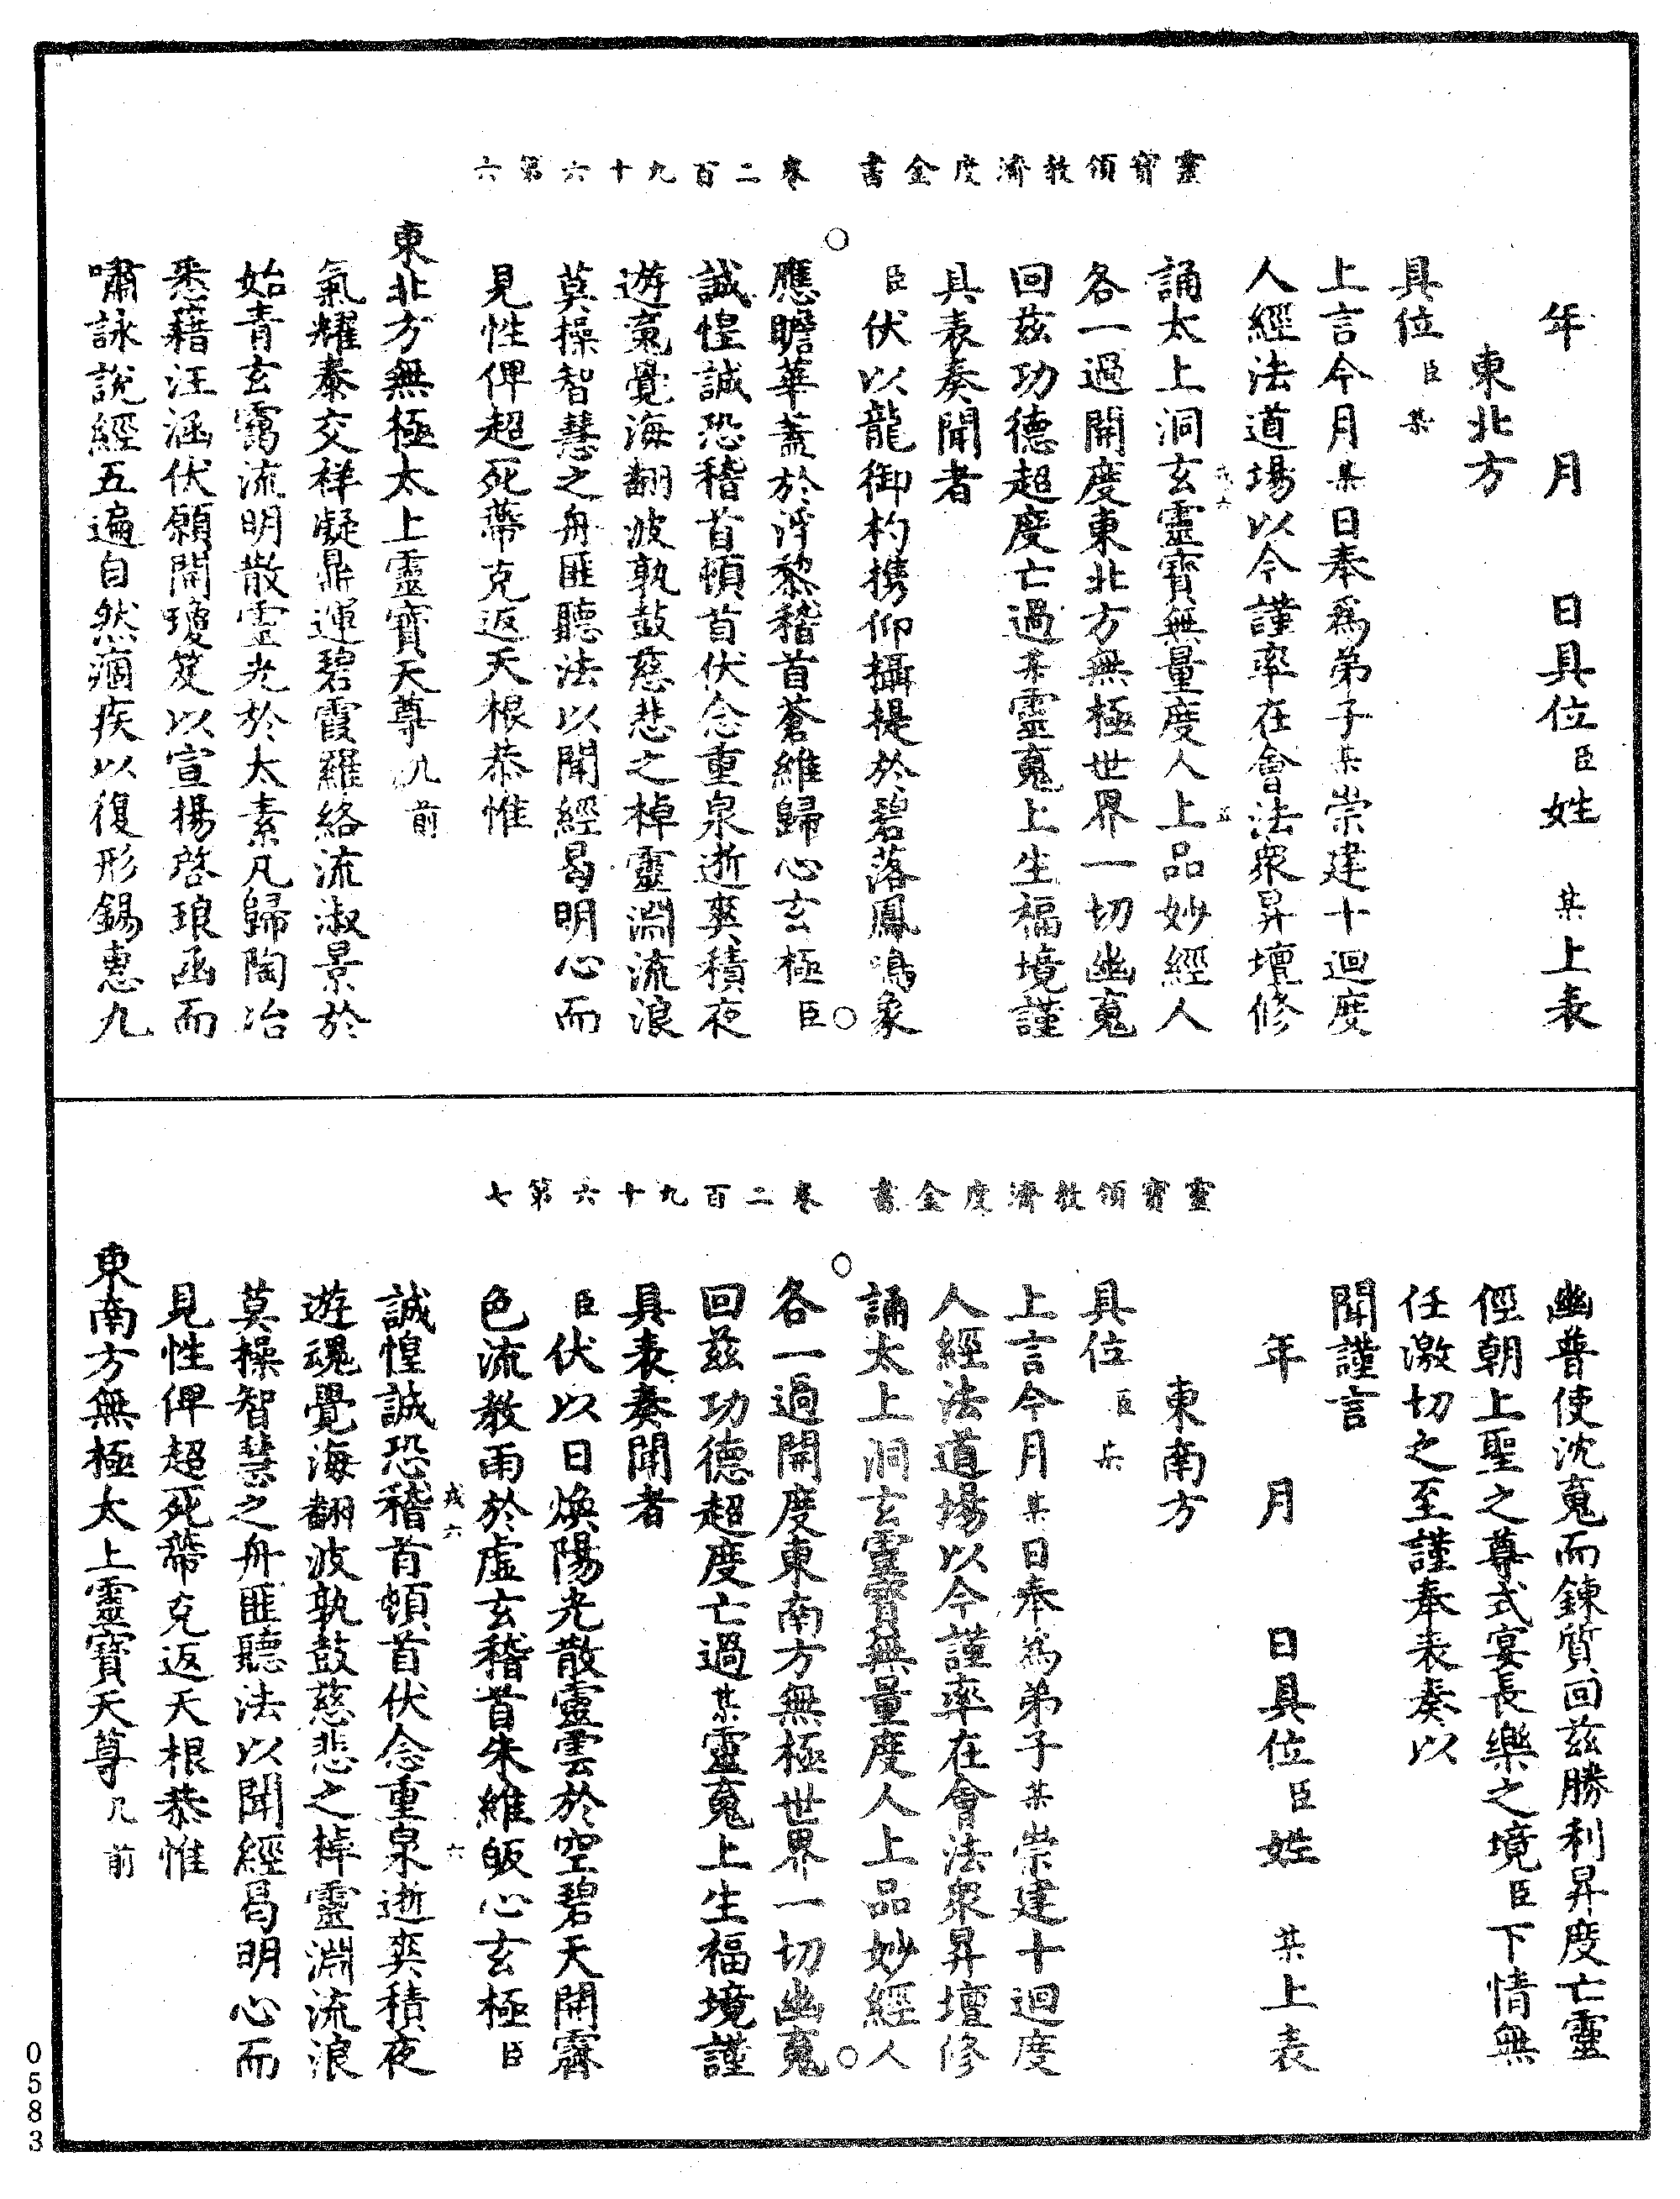 靈寶領教濟度金書　卷二百九十六第六
年　月　日具位臣姓　某上表
東北方
具位臣某
上言今月某日奉為弟子某崇建十迴度
人經法道場以今謹率在會法眾昇壇修
誦太上洞玄靈寶無量度人上品妙經人
各一過開度東北方無極世界一切幽䰟
回茲功德超度亡過某靈䰟上生福境謹
具表奏聞者
臣伏以龍御杓携仰攝提於碧落鳳鳴象
應瞻華蓋於浮黎稽首蒼維歸心玄極臣
誠惶誠恐稽首頓首伏念重泉逝爽積夜
遊䰟覺海翻波孰鼓慈悲之棹靈淵流浪
莫操智慧之舟匪聽法以聞經曷明心而
見性俾超死蔕克返天根恭惟
東北方無極太上靈寶天尊几前
氣耀泰交祥凝鼎運碧霞羅絡流淑景於
始青玄靄流明散靈光於太素凡歸陶冶
悉藉汪涵伏願開瓊笈以宣揚啓琅函而
嘯詠說經五遍自然痼疾以復形錫惠九
戎六
五
靈寶領教濟度金書　卷二百九十六第七
幽普使沈䰟而鍊質回茲勝利昇度亡靈
俓朝上聖之尊式宴長樂之境臣下情無
任激切之至謹奉表奏以
聞謹言
年　月　日具位臣姓　某上表
東南方
具位臣某
上言今月某日奉為弟子某崇建十迴度
人經法道場以今謹率在會法眾昇壇修
誦太上洞玄靈寶無量度人上品妙經人
各一過開度東南方無極世界一切幽䰟
回茲功德超度亡過某靈䰟上生福境謹
具表奏聞者
臣伏以日煥陽光散靈雲於空碧天開霽
色流教雨於虛玄稽首朱維皈心玄極臣
誠惶誠恐稽首頓首伏念重泉逝爽積夜
遊魂覺海翻波孰鼓慈悲之棹靈淵流浪
莫操智慧之舟匪聽法以聞經曷明心而
見性俾超死蔕克返天根恭惟
東南方無極太上靈寶天尊几前
戎六
六
0583